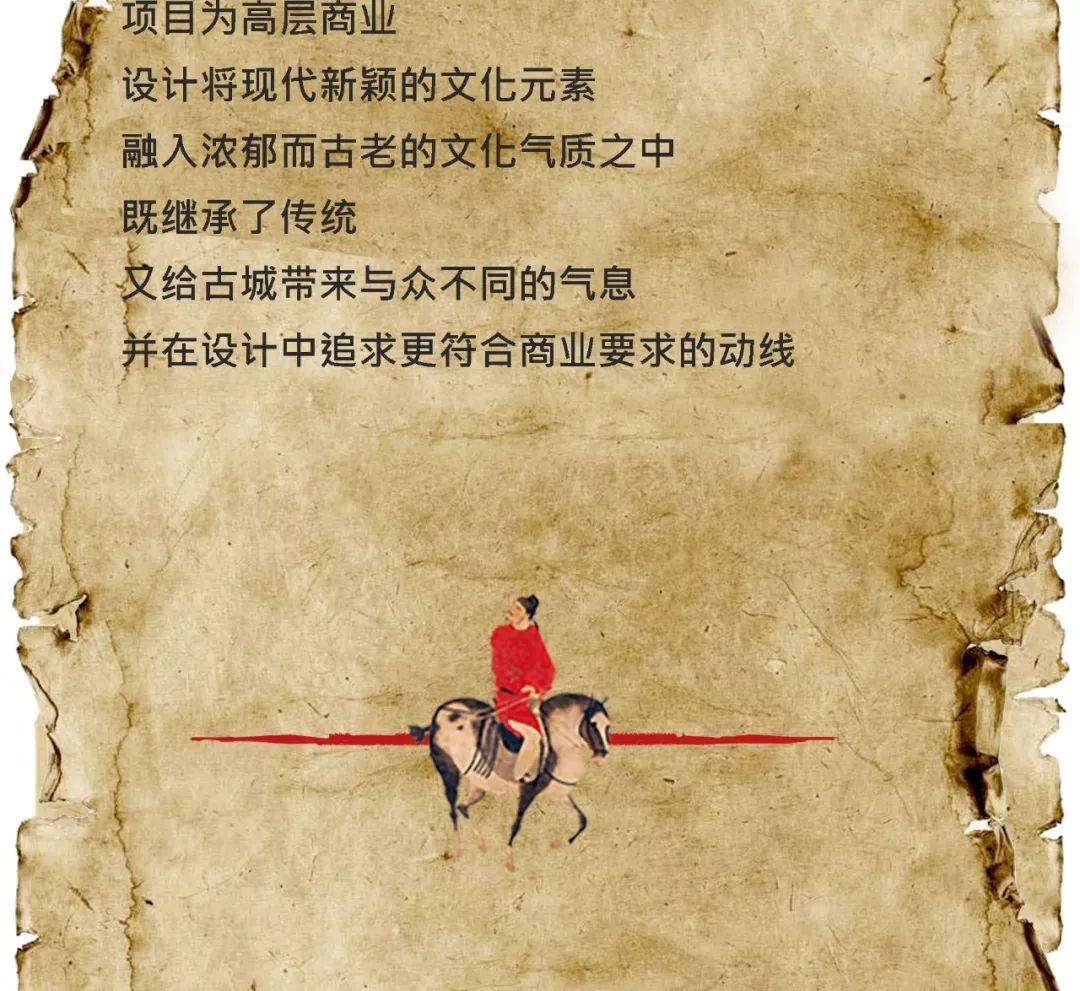 项目为高层商业
设计将现代新颖的文化元素
融入浓郁而古老的文化气质之中
既继承了传统
又给古城带来与众不同的气息
并在设计中追求更符合商业要求的动线